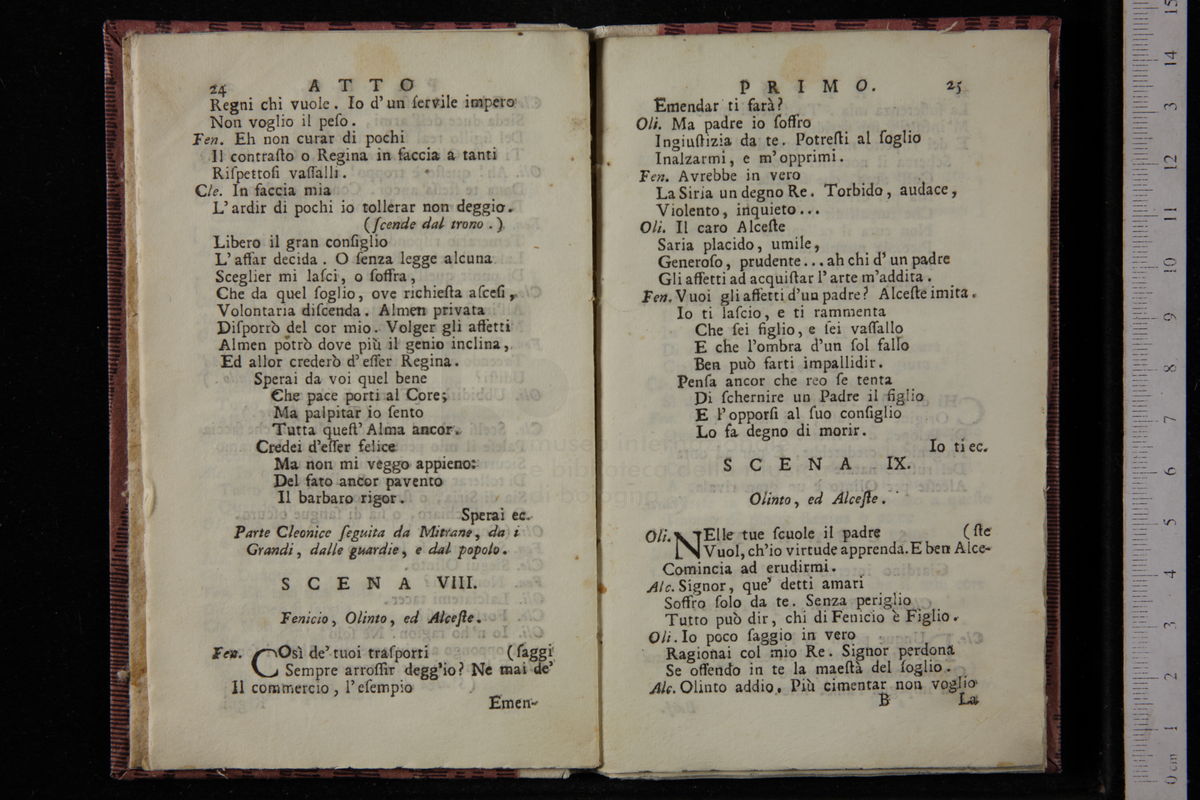 24 ATTO
Regni chi vuole. Io d'un ſervile impero
Non voglio il peſo.
Fen. Eh non curar di pochi
Il contraſto o Regina in faccia a tanti
Riſpettoſi vaſſalli.
Cle. In faccia mia
L'ardir di pochi io tollerar non deggio.
(ſcende dal trono.)
Libero il gran conſiglio
L'affar decida. O ſenza legge alcuna
Sceglier mi laſci, o ſoffra,
Che da quel ſoglio, ove richieſta aſceſi,
Volontaria diſcenda. Almen privata
Diſporrò del cor mio. Volger gli affetti
Almen potrò dove più il genio inclina,
Ed allor crederò d'eſſer Regina.
Sperai da voi quel bene
Che pace porti al Core;
Ma palpitar io ſento
Tutta queſt'Alma ancor.
Credei d'eſſer felice
Ma non mi veggo appieno:
Del fato ancor pavento
Il barbaro rigor.
Sperai ec.
Parte Cleonice ſeguita da Mitrane, da i
Grandi, dalle guardie, e dal popolo.
SCENA VIII.
Fenicio, Olinto, ed Alceſte.
Fen. COsì de' tuoi traſporti (ſaggi
Sempre arroſſir degg'io? Ne mai de'
Il commercio, l'eſempio
Emen-
PRIMO. 25
Emendar ti farà?
Oli. Ma padre io ſoffro
Ingiuſtizia da te. Potreſti al ſoglio
Inalzarmi, e m'opprimi.
Fen. Avrebbe in vero
La Siria un degno Re. Torbido, audace,
Violento, inquieto...
Oli. Il caro Alceſte
Saria placido, umile,
Generoſo, prudente... ah chi d'un padre
Gli affetti ad acquiſtar l'arte m'addita.
Fen. Vuoi gli affetti d'un padre? Alceſte imita.
Io ti laſcio, e ti rammenta
Che ſei figlio, e ſei vaſſallo
E che l'ombra d'un ſol fallo
Ben può farti impallidir.
Penſa ancor che reo ſe tenta
Di ſchernire un Padre il figlio
E l'opporſi al ſuo conſiglio
Lo fa degno di morir.
Io ti ec.
SCENA IX.
Olinto, ed Alceſte.
Oli. NElle tue ſcuole il padre (ſte
Vuol, ch'io virtude apprenda. E ben Alce-
Comincia ad erudirmi.
Alc. Signor, que' detti amari
Soffro ſolo da te. Senza periglio
Tutto può dir, chi di Fenicio è Figlio.
Oli. Io poco ſaggio in vero
Ragionai col mio Re. Signor perdona
Se offendo in te la maeſtà del ſoglio.
Alc. Olinto addio. Più cimentar non voglio
B La